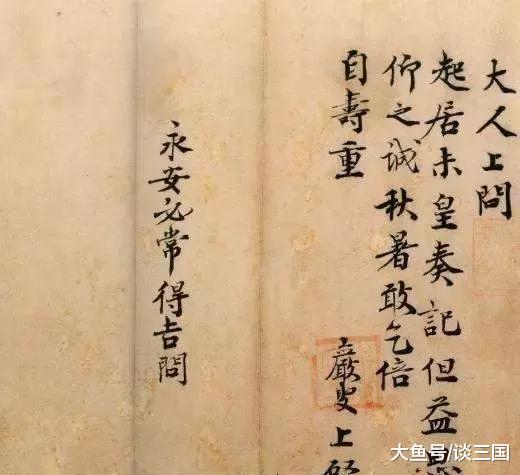 大人上問
起居未皇奏記但益
仰之誠秋暑敢乞倍
自壽重
巖叟上
永安必常得吉問
大鱼号/谈三国